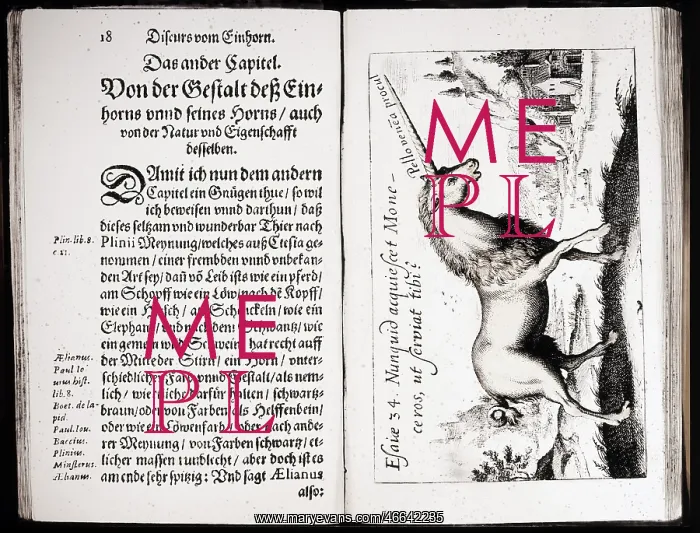 18 Discurs vom Einhorn.
Das ander Capitel.
Von der Gestalt deß Ein-
horns vnnd seines Horns / auch
von der Natur vnd Eigenschafft
desselben.
DAmit ich nun dem andern
Capitel ein Gnügen thue / so wil
ich beweisen vnnd darthun / daß
dieses seltzam vnd wunderbar Thier nach
Plinii Meynung / welches auß Ctesia ge-
nommen / einer frembden vnnd vnbekan-
den Art sey / dañ dẽ Leib ists wie ein pferd /
am Schopff wie ein Löw / nach dẽ Kopff /
wie ein Hirsch / an Schenckeln / wie ein
Elephant / vnd nach dem Schwantz / wie
ein gemein Schwein / hat recht auff
der Mitte der Stirn / ein Horn / vnter-
schiedlicher Farb vnnd Gestalt / als nem-
lich / wie etliche darfür halten / schwartz-
braun / oder von Farben als Helffenbein /
oder wie ein Löwenfarb / oder nach ande-
rer Meynung / von Farben schwartz / et-
licher massen rundlecht / aber doch ist es
am ende sehr spitzig: Vnd sagt Ælianus
also:
Plin. lib. 8.
c. 21.
Ælianus.
Paul Io
uius hist.
lib. 8.
Boet. de la-
pid.
Paul. Iou.
Baccius.
Plinius.
Munsterus.
Ælianus.
Esaiæ 34. Nunquid acquiescet Mono-
ceros, ut serviat tibi?
Pello venena procul
ME
PL
ME
PL
www.maryevans.com/46642235